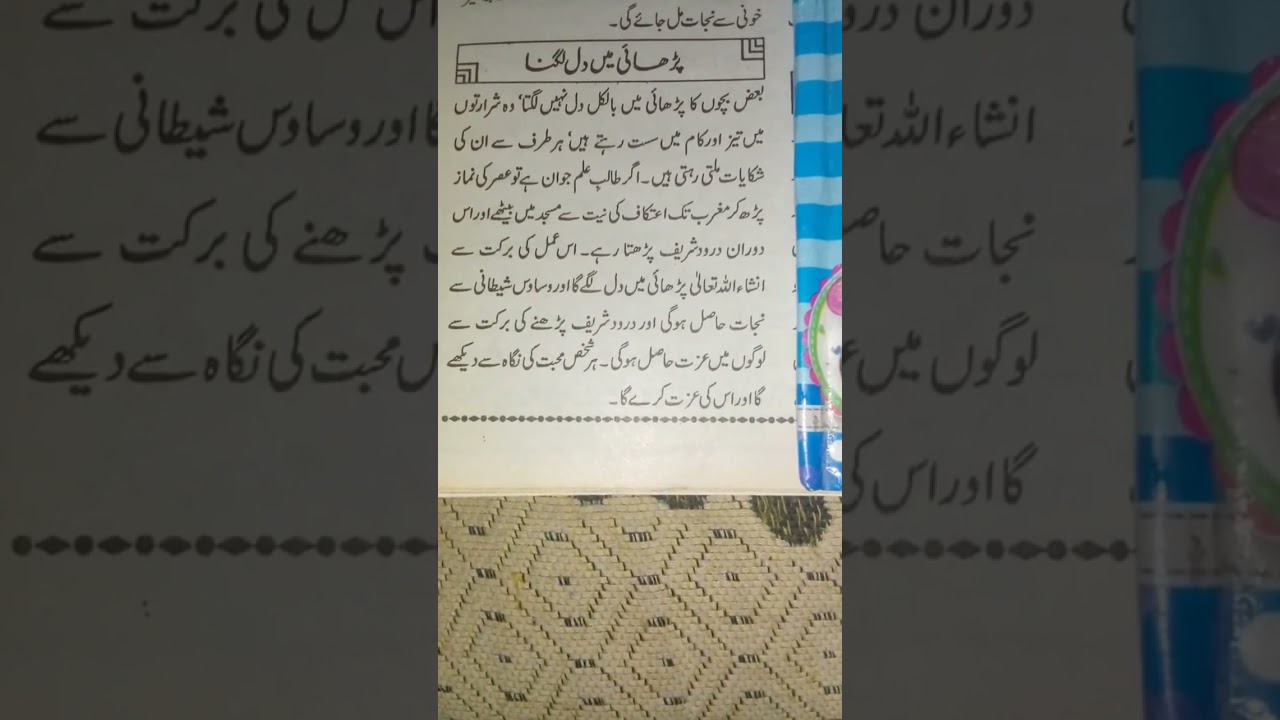 خونی سے نجات مل جائے گی۔
پڑھائی میں دل لگنا
بعض بچوں کا پڑھائی میں بالکل دل نہیں لگتا' وہ شرارتوں
میں تیز اور کام میں سست رہتے ہیں' ہر طرف سے ان کی
شکایات ملتی رہتی ہیں۔ اگر طالب علم جوان ہے تو عصر کی نماز
پڑھ کر مغرب تک اعتکاف کی نیت سے مسجد میں بیٹھے اور اس
دوران درود شریف پڑھتا رہے۔ اس عمل کی برکت سے
انشاء اللہ تعالیٰ پڑھائی میں دل لگے گا اور وساوس شیطانی سے
نجات حاصل ہوگی اور درود شریف پڑھنے کی برکت سے
لوگوں میں عزت حاصل ہوگی۔ ہر شخص محبت کی نگاہ سے دیکھے
گا اور اس کی عزت کرے گا۔